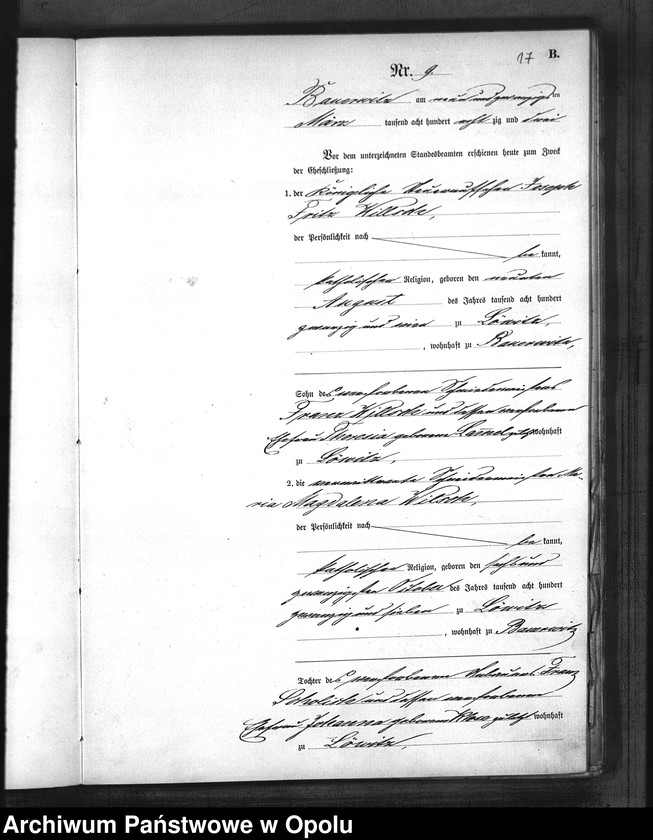 17 B.
Nr. 9.
Bauerwitz am neun und zwanzigsten
März tausend acht hundert acht zig und zwei
Vor dem unterzeichneten Standesbeamten erschienen heute zum Zweck
der Eheschließung:
1. der Königliche Joseph
Fritz Wilsch,
der Persönlichkeit nach
be kannt,
katholischer Religion, geboren den neunten
August des Jahres tausend acht hundert
zwanzig und zu Löwitz,
, wohnhaft zu Bauerwitz,
Sohn des verstorbenen Schneidermeisters
Franz und dessen verstorbenen
Ehefrau Theresia geborene zuletzt wohnhaft
zu Löwitz,
2. die verwittwete Schneidermeister Ma-
ria Magdalena
der Persönlichkeit nach
be kannt,
katholischer Religion, geboren den sechs und
zwanzigsten October des Jahres tausend acht hundert
zwanzig und sieben zu Löwitz
, wohnhaft zu Bauerwitz
Tochter des verstorbenen Franz
und dessen verstorbenen
Ehefrau Johanna geborenen Klose zuletzt wohnhaft
zu Löwitz,
Archiwum Państwowe w Opolu